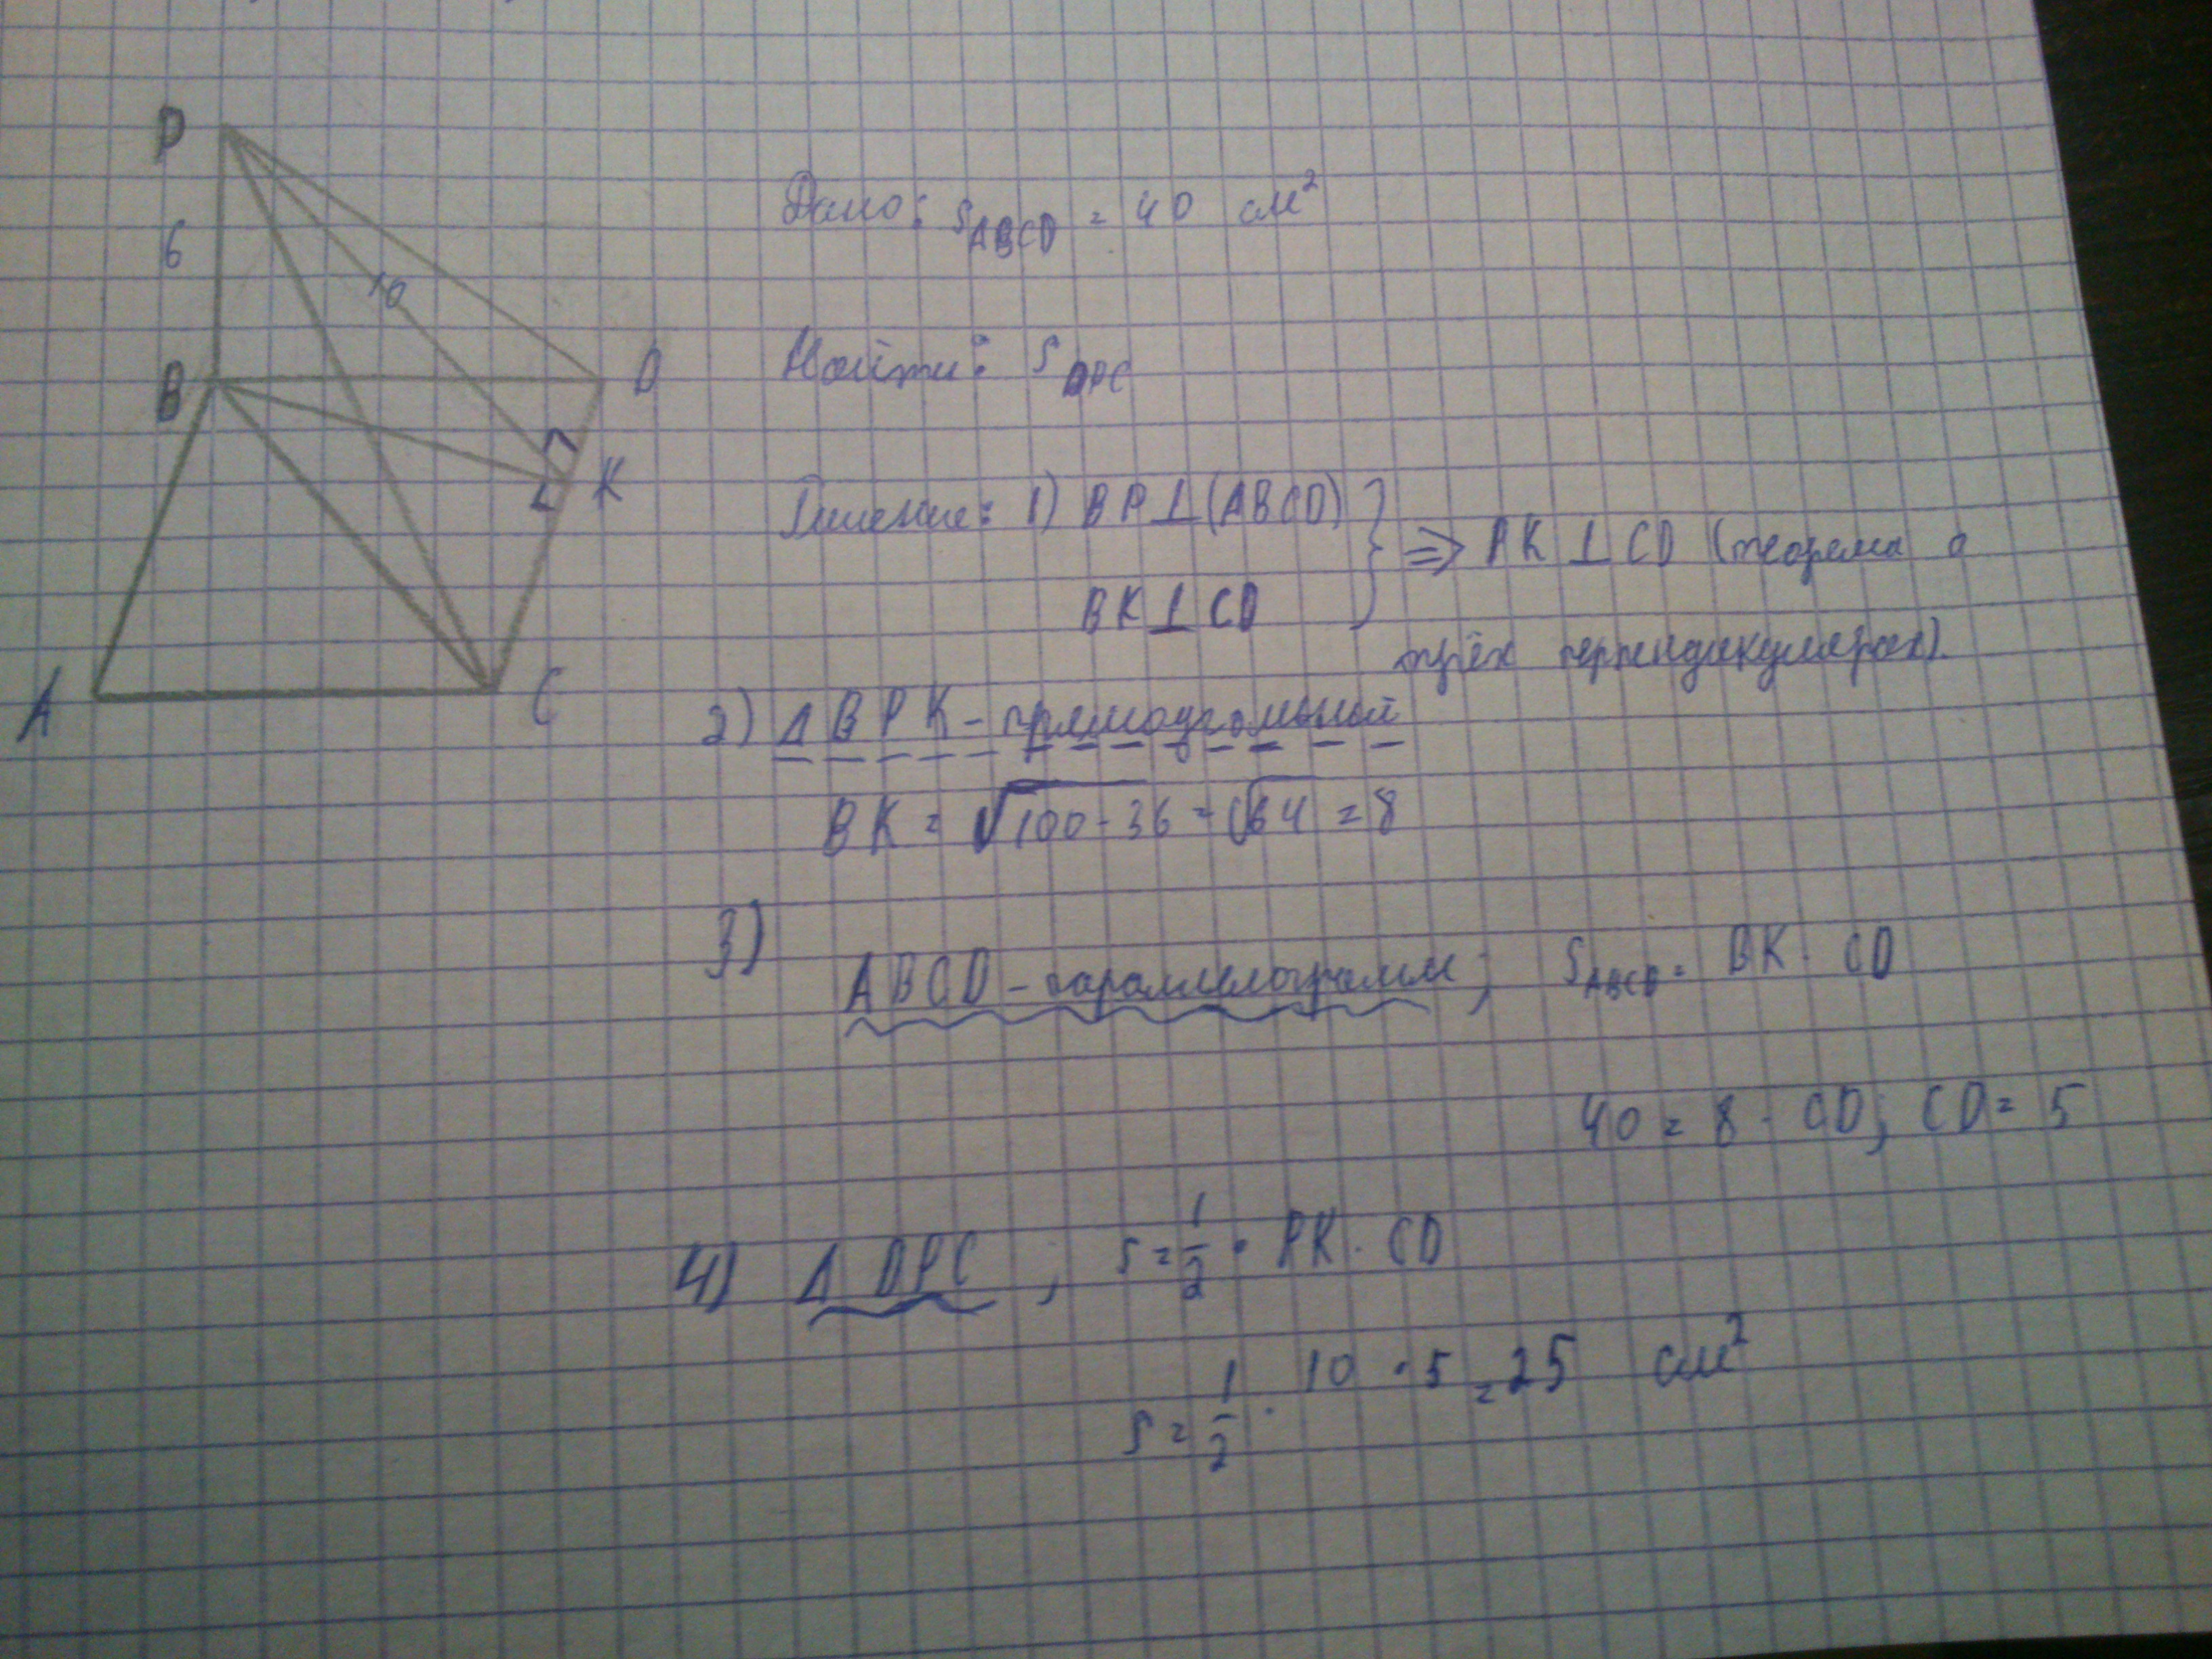 P
6
10
B
D
K
A
C
Дано: S_ABCD = 40 см²
Найти: S_DPC
Решение: 1) BP⊥(ABCD)
BK⊥CD } ⇒ PK⊥CD (теорема о
трёх перпендикулярах).
2) Δ BPK - прямоугольный
BK = √100-36 = √64 = 8
3)
ABCD - параллелограмм; S_ABCD = BK · CD
40 = 8 · CD; CD = 5
4) Δ DPC ; S = 1/2 · PK · CD
S = 1/2 · 10 · 5 = 25 см²